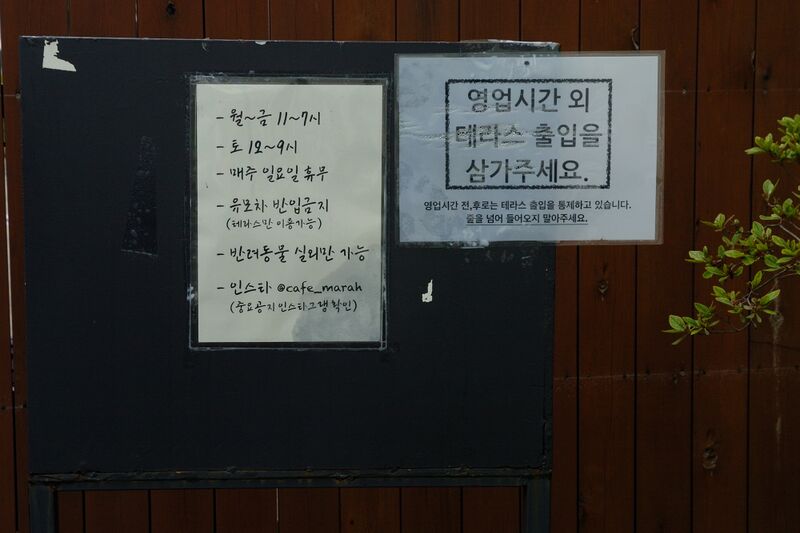 - 월~금 11~7시
- 토 12~9시
- 매주 일요일 휴무
- 유모차 반입금지
(테라스만 이용가능)
- 반려동물 실외만 가능
- 인스타 @cafe_marah
(중요공지 인스타그램 확인)
영업시간 외
테라스 출입을
삼가주세요.
영업시간 전,후로는 테라스 출입을 통제하고 있습니다.
줄을 넘어 들어오지 말아주세요.